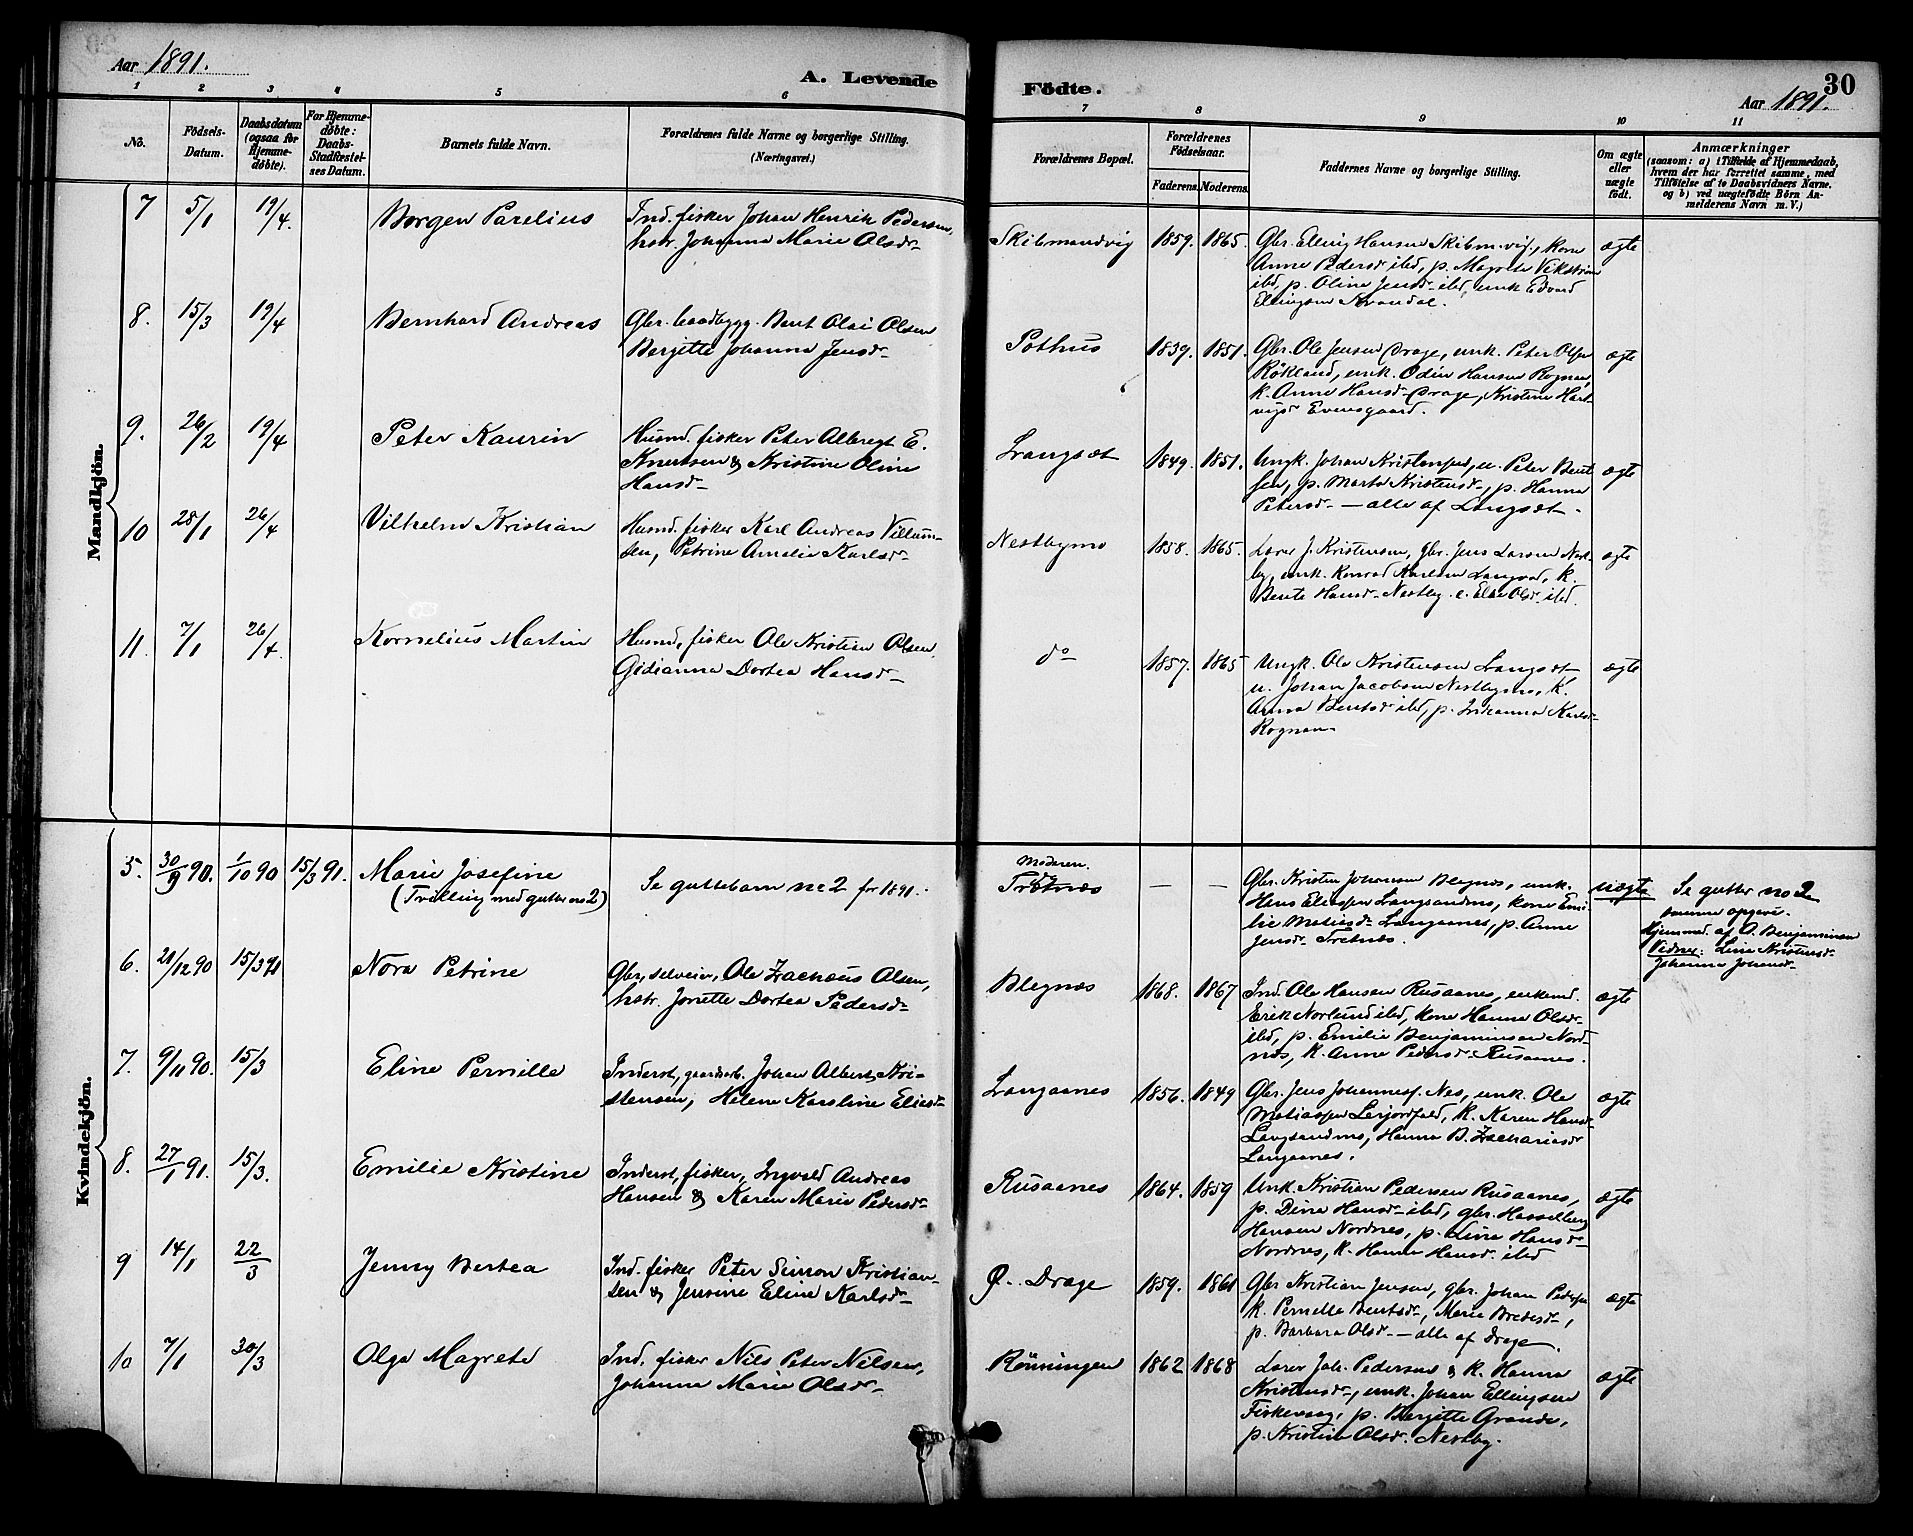 Aar 1891.
A. Levende
Födte.
30
Aar 1891.
1 2 3 4 5 6 7 8 9 10 11
No.
Födsels-
Datum.
Daabsdatum
(ogsaa for
Hjemme-
døbte).
For Hjemme-
døbte:
Daabs-
Stadfæstel-
ses Datum.
Barnets fulde Navn.
Forældrenes fulde Navne og borgerlige Stilling.
(Næringsvei.)
Forældrenes Bopæl.
Forældrenes
Födselsaar.
Faderens.
Moderens.
Faddernes Navne og borgerlige Stilling.
Om ægte
eller
uægte
födt.
Anmærkninger
(saasom: a) i Tilfælde af Hjemmedaab,
hvem der har forrettet samme, med
Tilföielse af to Daabsvidners Navne.
og b) ved uægtefödte Börn An-
melderens Navn m. V.)
Mandkjön.
7 5/1 19/4. Borgen Parelius
Ind. fisker Johan Henrik Pedersen,
hstr. Johanna Marie Olsdr
Skibmandvig 1859. 1865.
Gbr. Elling Hansen Skibm.vig, kone
Anne Pedersdr ibd, p. Magrete Vikstrøm
ibd, p. Oline Jensdr ibd, umk Edvard
Ellingsen Kvandal.
ægte
8. 15/3 19/4 Bernhard Andreas
Gbr. baadbygg. Bent Olai Olsen
Bergitte Johanna Jensdr
Pothus 1839. 1851.
Gbr. Ole Jensen Drage, umk. Peter Olsen
Røkland, umk. Odin Hansen Rognan,
k. Anne Hansdr Drage, Kristine Hart-
vigsdr Evensgaard.
ægte
9. 26/2 19/4 Peter Kaurin
Husmd. fisker Peter Albregt E.
Knertsen & Kristine Oline
Hansdr
Langsæt 1849. 1851.
Ungk. Johan Kristensen, u. Peter Bent-
sen, p. Marta Kristensdr, p. Hanna
Petersdr — alle af Langsæt.
ægte
10 28/1 26/4 Vilhelm Kristian
Husmd. fisker Karl Andreas Villum-
sen, Petrine Amelie Karlsdr
Nestbymo 1858. 1865.
Lærer J. Kristensen, gbr. Jens Larsen Nest-
by, umk. Konrad Karlsen Langvad, k.
Bente Hansdr Nestby. e. Else Olsdr ibd.
ægte
11. 7/1 26/4. Kornelius Martin
Husmd, fisker Ole Kristian Olsen,
Gidianna Dortea Hansdr
do 1857. 1865
Ungk. Ole Kristensen Langsæt
u. Johan Jacobsen Nestbymo, k.
Anna Bentsdr ibd, p. Karlsdr
Rognan
ægte
Kvindekjön.
5. 30/9 90. 1/10 90 15/3 91. Marie Josefine
(Trilling med gutten no 2)
Se guttebarn no 2 for 1891.
Moderen.
Trætnæs — —
Gbr. Kristen Johansen Blegnæs, umk.
Hans Eliassen Langsandmo, kone Emi-
lie Matiasdr Langaanes, p. Anne
Jensdr Trætnæs.
uægte
Se gutter no 2
samme opgave.
Hjemmed. af A. Benjaminsen
Vidner: Line Kristensdr
Johanna Johansdr
6. 21/12 90 15/3 91 Nora Petrine
Gbr, selveier, Ole Zachæus Olsen,
hstr. Jonette Dortea Pedersdr
Blegnæs 1868. 1867
Ind. Ole Hansen Rusaanes, enkemd.
Erik Norlund ibd, kone Hanna Olsdr
ibd, p. Emilie Benjaminsen Nord-
næs, k. Anne Pedersdr Rusaanes.
ægte
7. 9/11 90. 15/3 Eline Pernille
Inderst, gaardsarb. Johan Albert Kri-
stensen, Helene Karoline Eliasdr
Langaanes 1856. 1849
Gbr. Jens Johanness. Nes, umk. Ole
Matiassen Lerjordfald, k. Karen Hansdr
Langsandmo, Hanna B. Zachariasdr
Langaanes.
ægte
8. 27/1 91. 15/3. Emilie Kristine
Inderst, fisker, Ingvald Andreas
Hansen & Karen Marie Pedersdr
Rusaanes 1864. 1859
Umk. Kristian Pedersen Rusaanes,
p. Dina Hansdr ibd, gbr. Hasselberg
Hansen Nordnes, p. Lina Hansdr
Nordnes, k. Hanna Hansdr ibd
ægte
9 14/1 22/3 Jenny Bertea
Ind. fisker Peter Simon Kristian-
sen & Jensine Eline Karlsdr
Ø. Drage 1859. 1861
Gbr Kristian Jensen, gbr. Johan Peders.
k. Pernella Bentsdr, Marie Bredesdr,
p. Barbara Olsdr — alle af Drage.
ægte
10 7/1 30/3 Olga Magrete
Ind. fisker Nils Peter Nilsen,
Johanna Marie Olsdr
Rönningen 1862 1868
Lærer Joh. Pedersen & k. Hanna
Kristensdr, umk. Johan Ellingsen
Fiskevaag, p. Bergitte Grande,
p. Kristine Olsdr. Nestby.
ægte